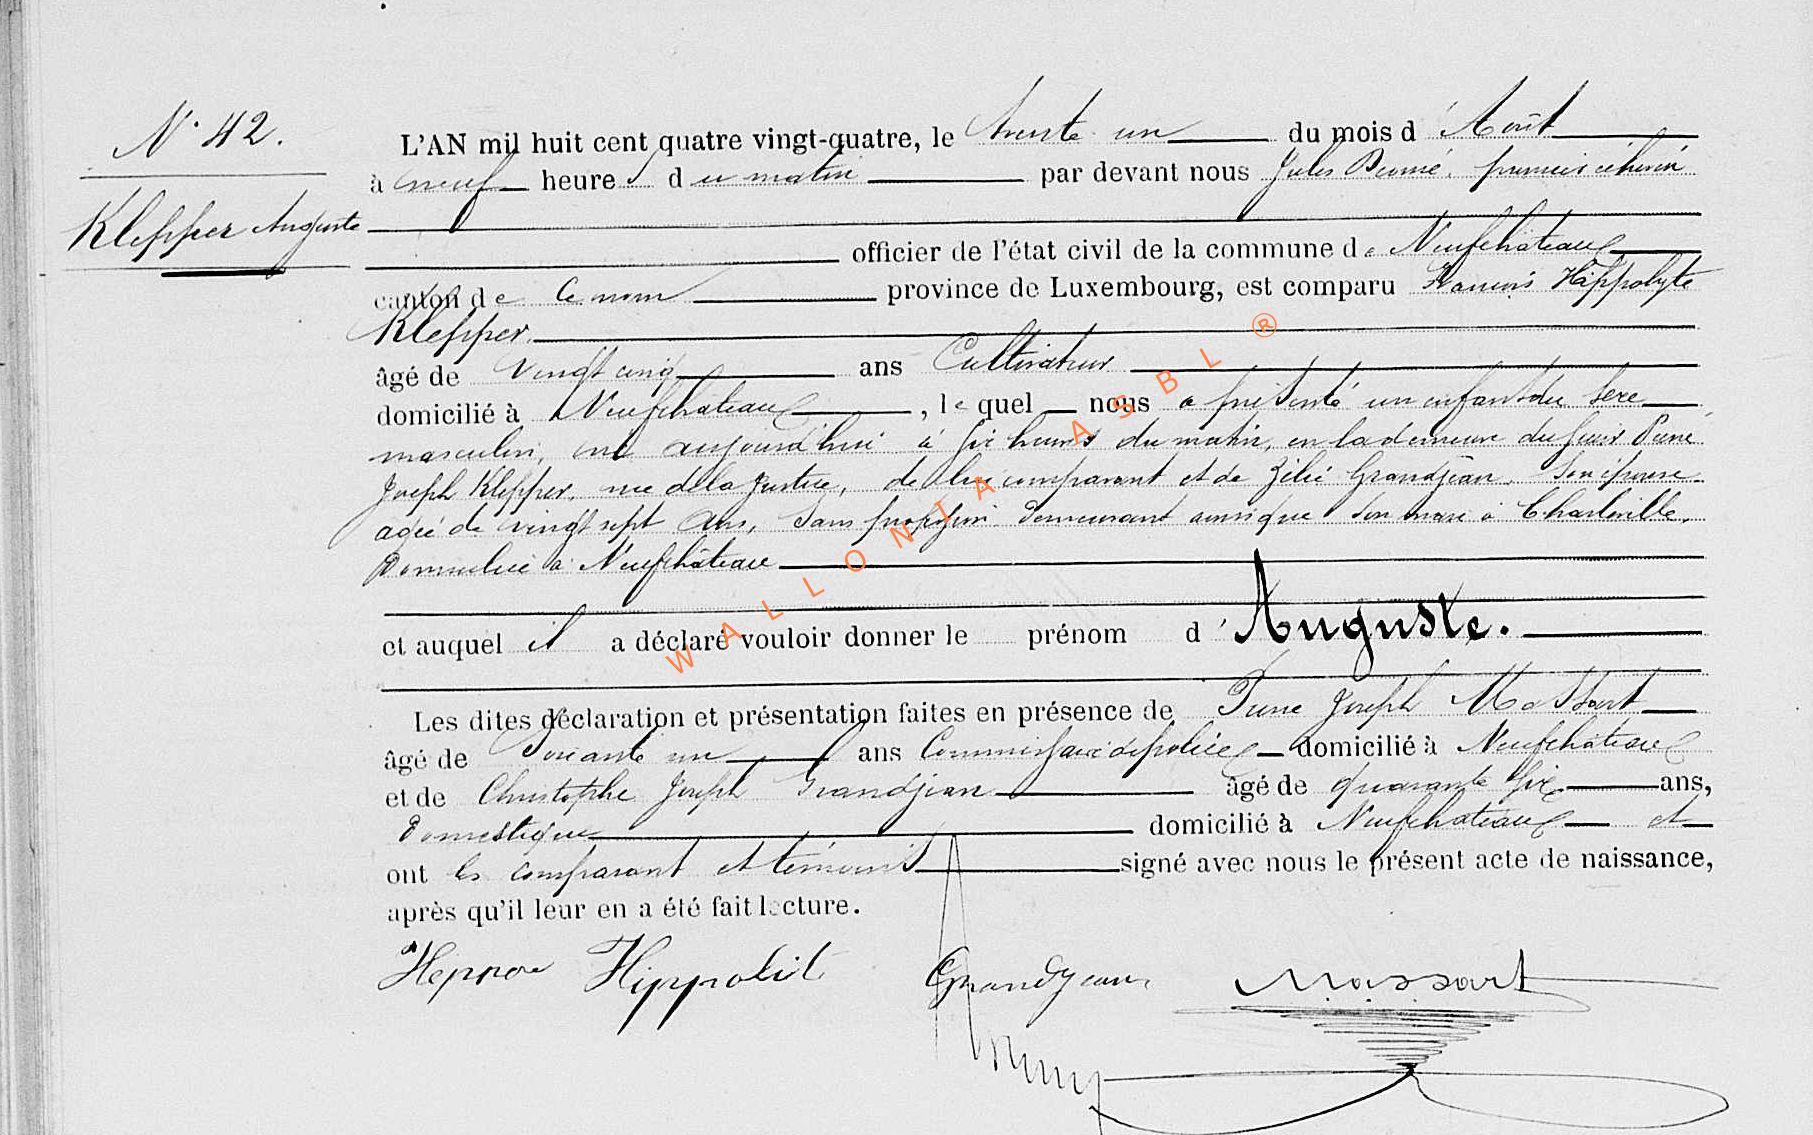 N° 42.
Klepper Auguste
L'AN mil huit cent quatre vingt-quatre, le trente un du mois d'Août
à neuf heures du matin par devant nous Jules premier échevin
officier de l'état civil de la commune de Neufchâteau
canton de Ce nom province de Luxembourg, est comparu François Hippolyte
Klepper.
âgé de vingt cinq ans Cultivateur
domicilié à Neufchateau, lequel nous a présenté un enfant du sexe
masculin, né aujourd'hui à six heures du matin, en la demeure du sieur Pierre
Joseph Klepper, rue de la Justice, de lui comparant et de Zélie Grandjean, son épouse
agée de vingt sept ans, sans profession demeurant ainsi que son mari à Charleville,
Domiciliée à Neufchâteau
et auquel il a déclaré vouloir donner le prénom d'Auguste.
Les dites déclaration et présentation faites en présence de Pierre Joseph Massart
âgé de soixante un ans Commissaire de police domicilié à Neufchâteau
et de Christophe Joseph Grandjean âgé de quarante six ans,
Domestique domicilié à Neufchateau et
ont les comparant et témoins signé avec nous le présent acte de naissance,
après qu'il leur en a été fait lecture.
Hippolit Grandjean Massart
WALLONIA ASBL ®